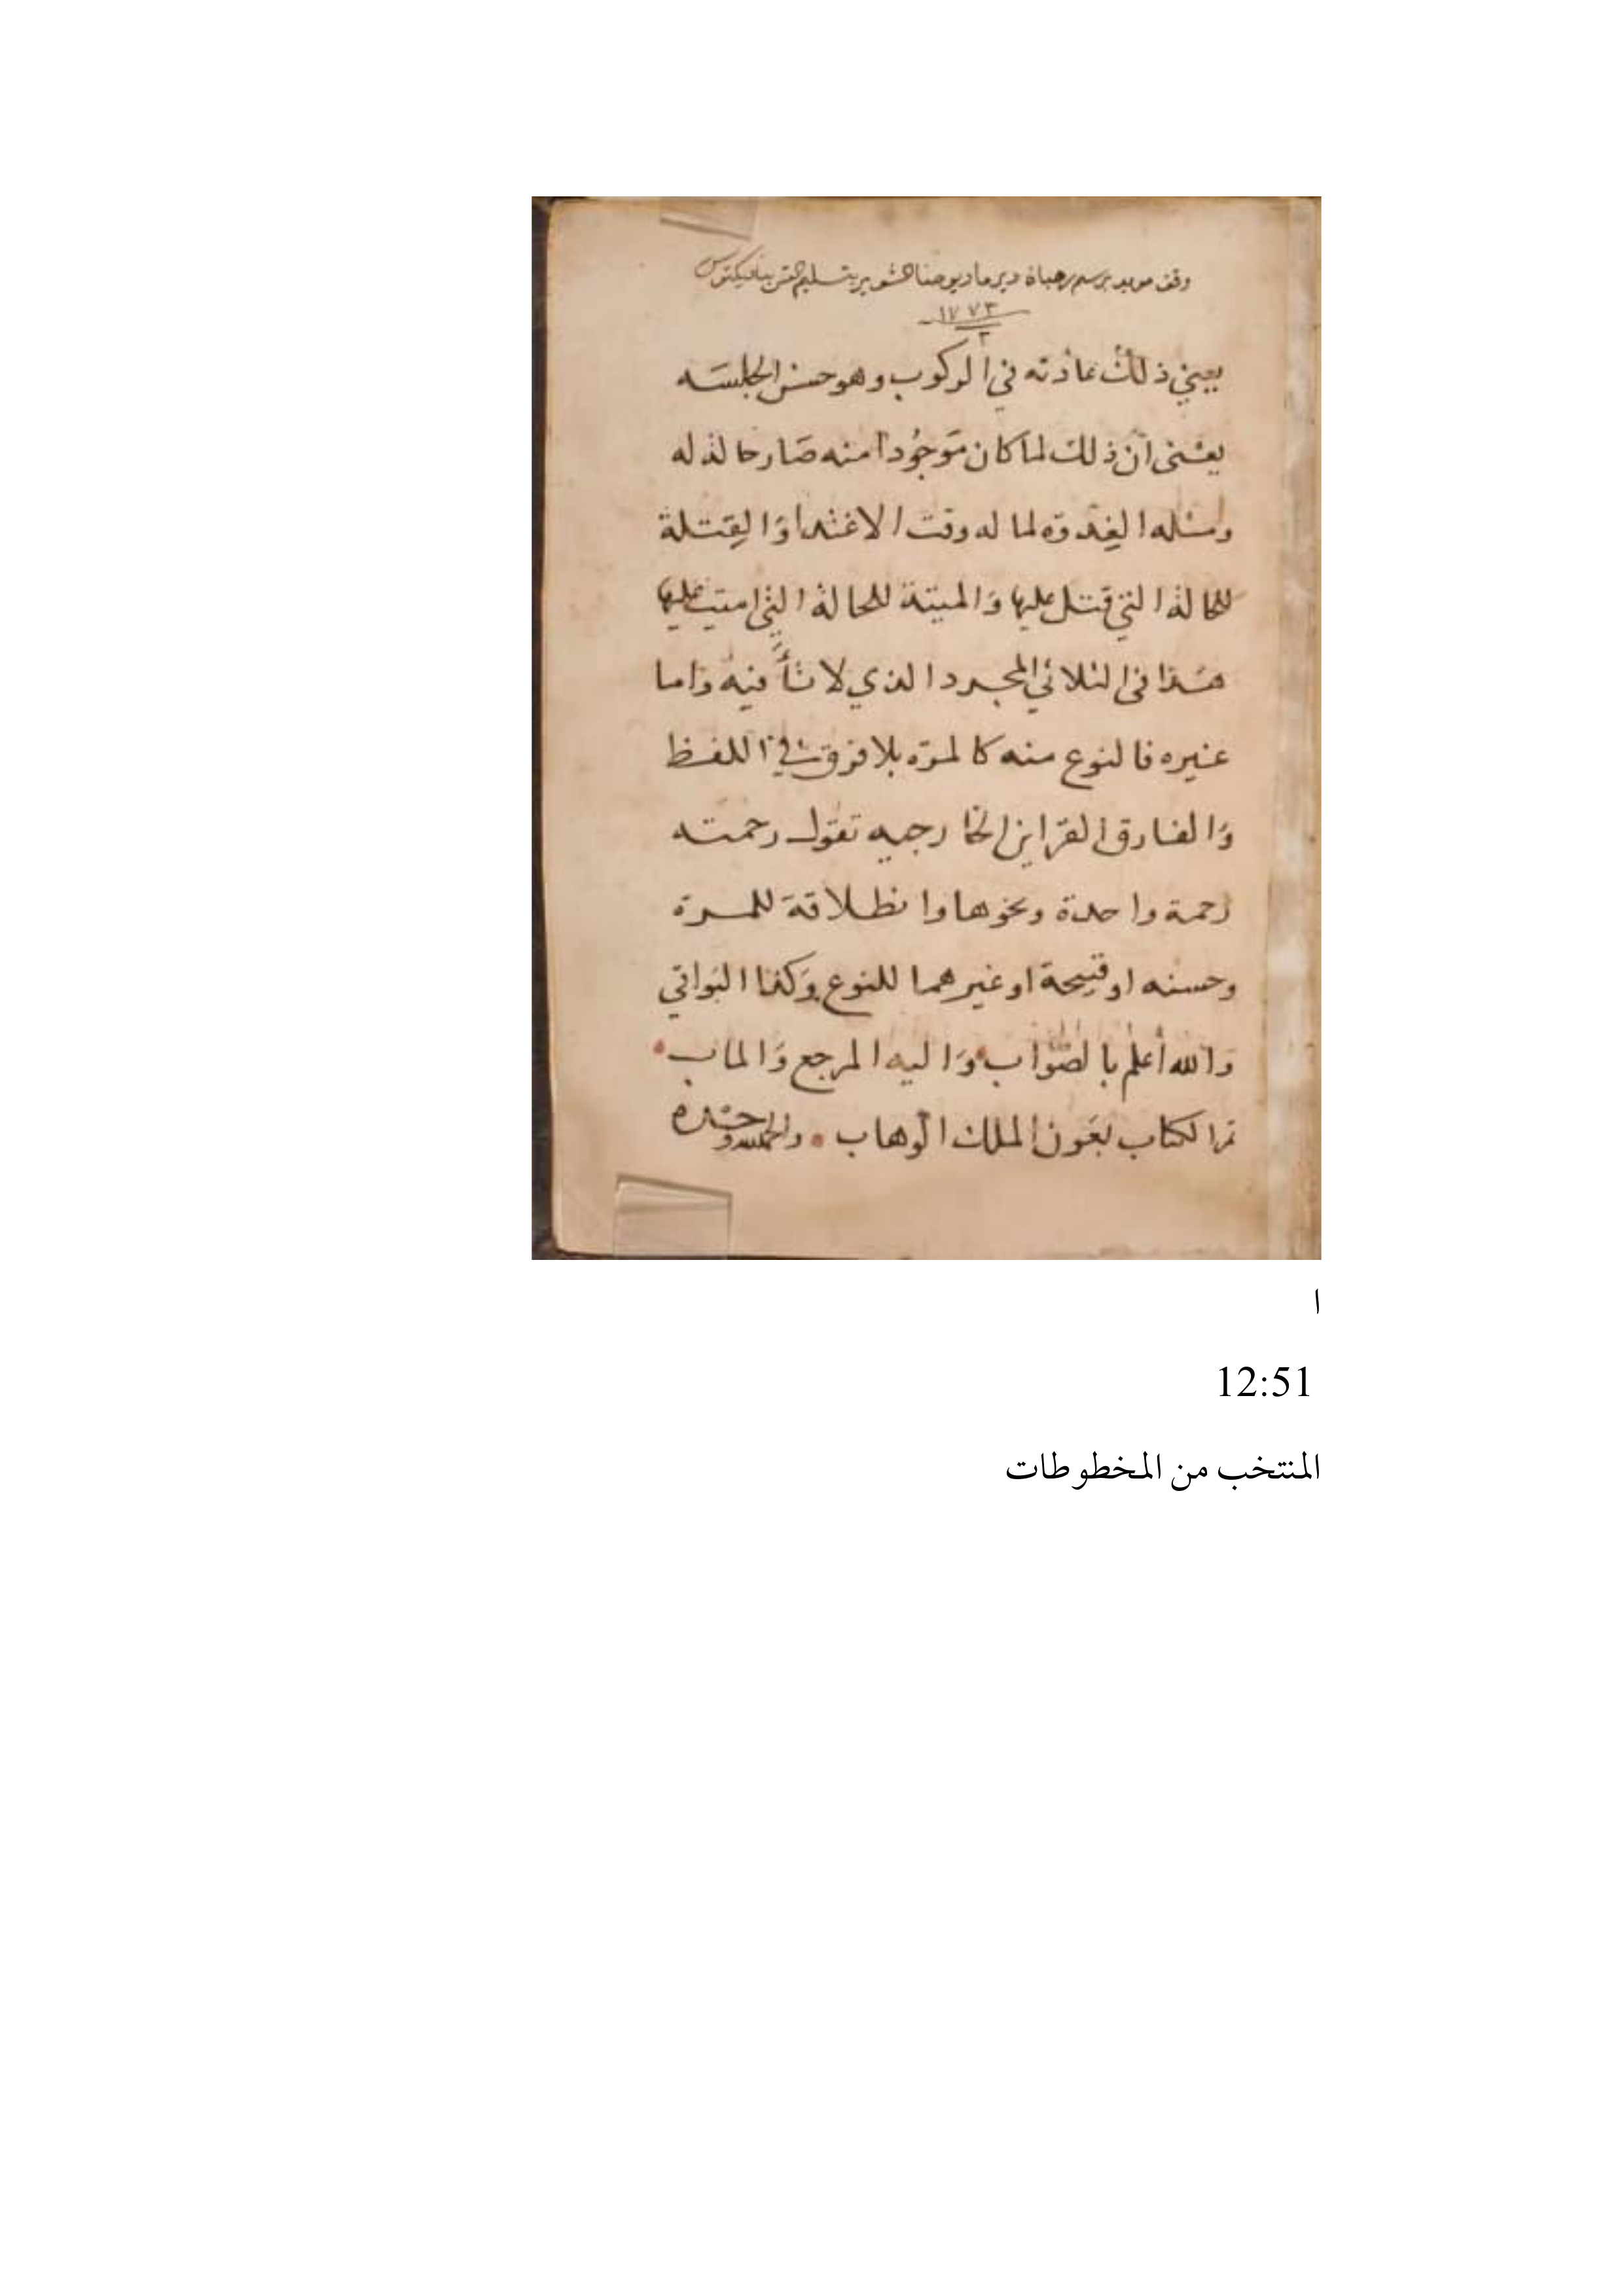 وقف موبد برسم رهباة دير ماريوحنا الشوير بتسليم القس بناديكتوس
١٧٧٣
يعيني ذلك عادته في الركوب وهو حسن الجلسه
يعني ان ذلك لما كان موجودا منه صار حالة له
ومثله الغدوه لما له وقت الاغتداء والقتلة
للحالة التي قتل عليها والميتة للحالة التي اميت عليها
هذا في الثلاثي المجرد الذي لا تأ فيه واما
غيره فالنوع منه كالمرة بلا فرق في اللفظ
والفارق القراين الخارجيه تقول رحمته
رحمة واحدة ونحوها وانطلاقة للمرة
وحسنه او قبيحة او غيرهما للنوع وكذا البواقي
والله أعلم بالصواب واليه المرجع والماب
تم الكتاب بعون الملك الوهاب والحمد لله وحده
ا
12:51
المنتخب من المخطوطات